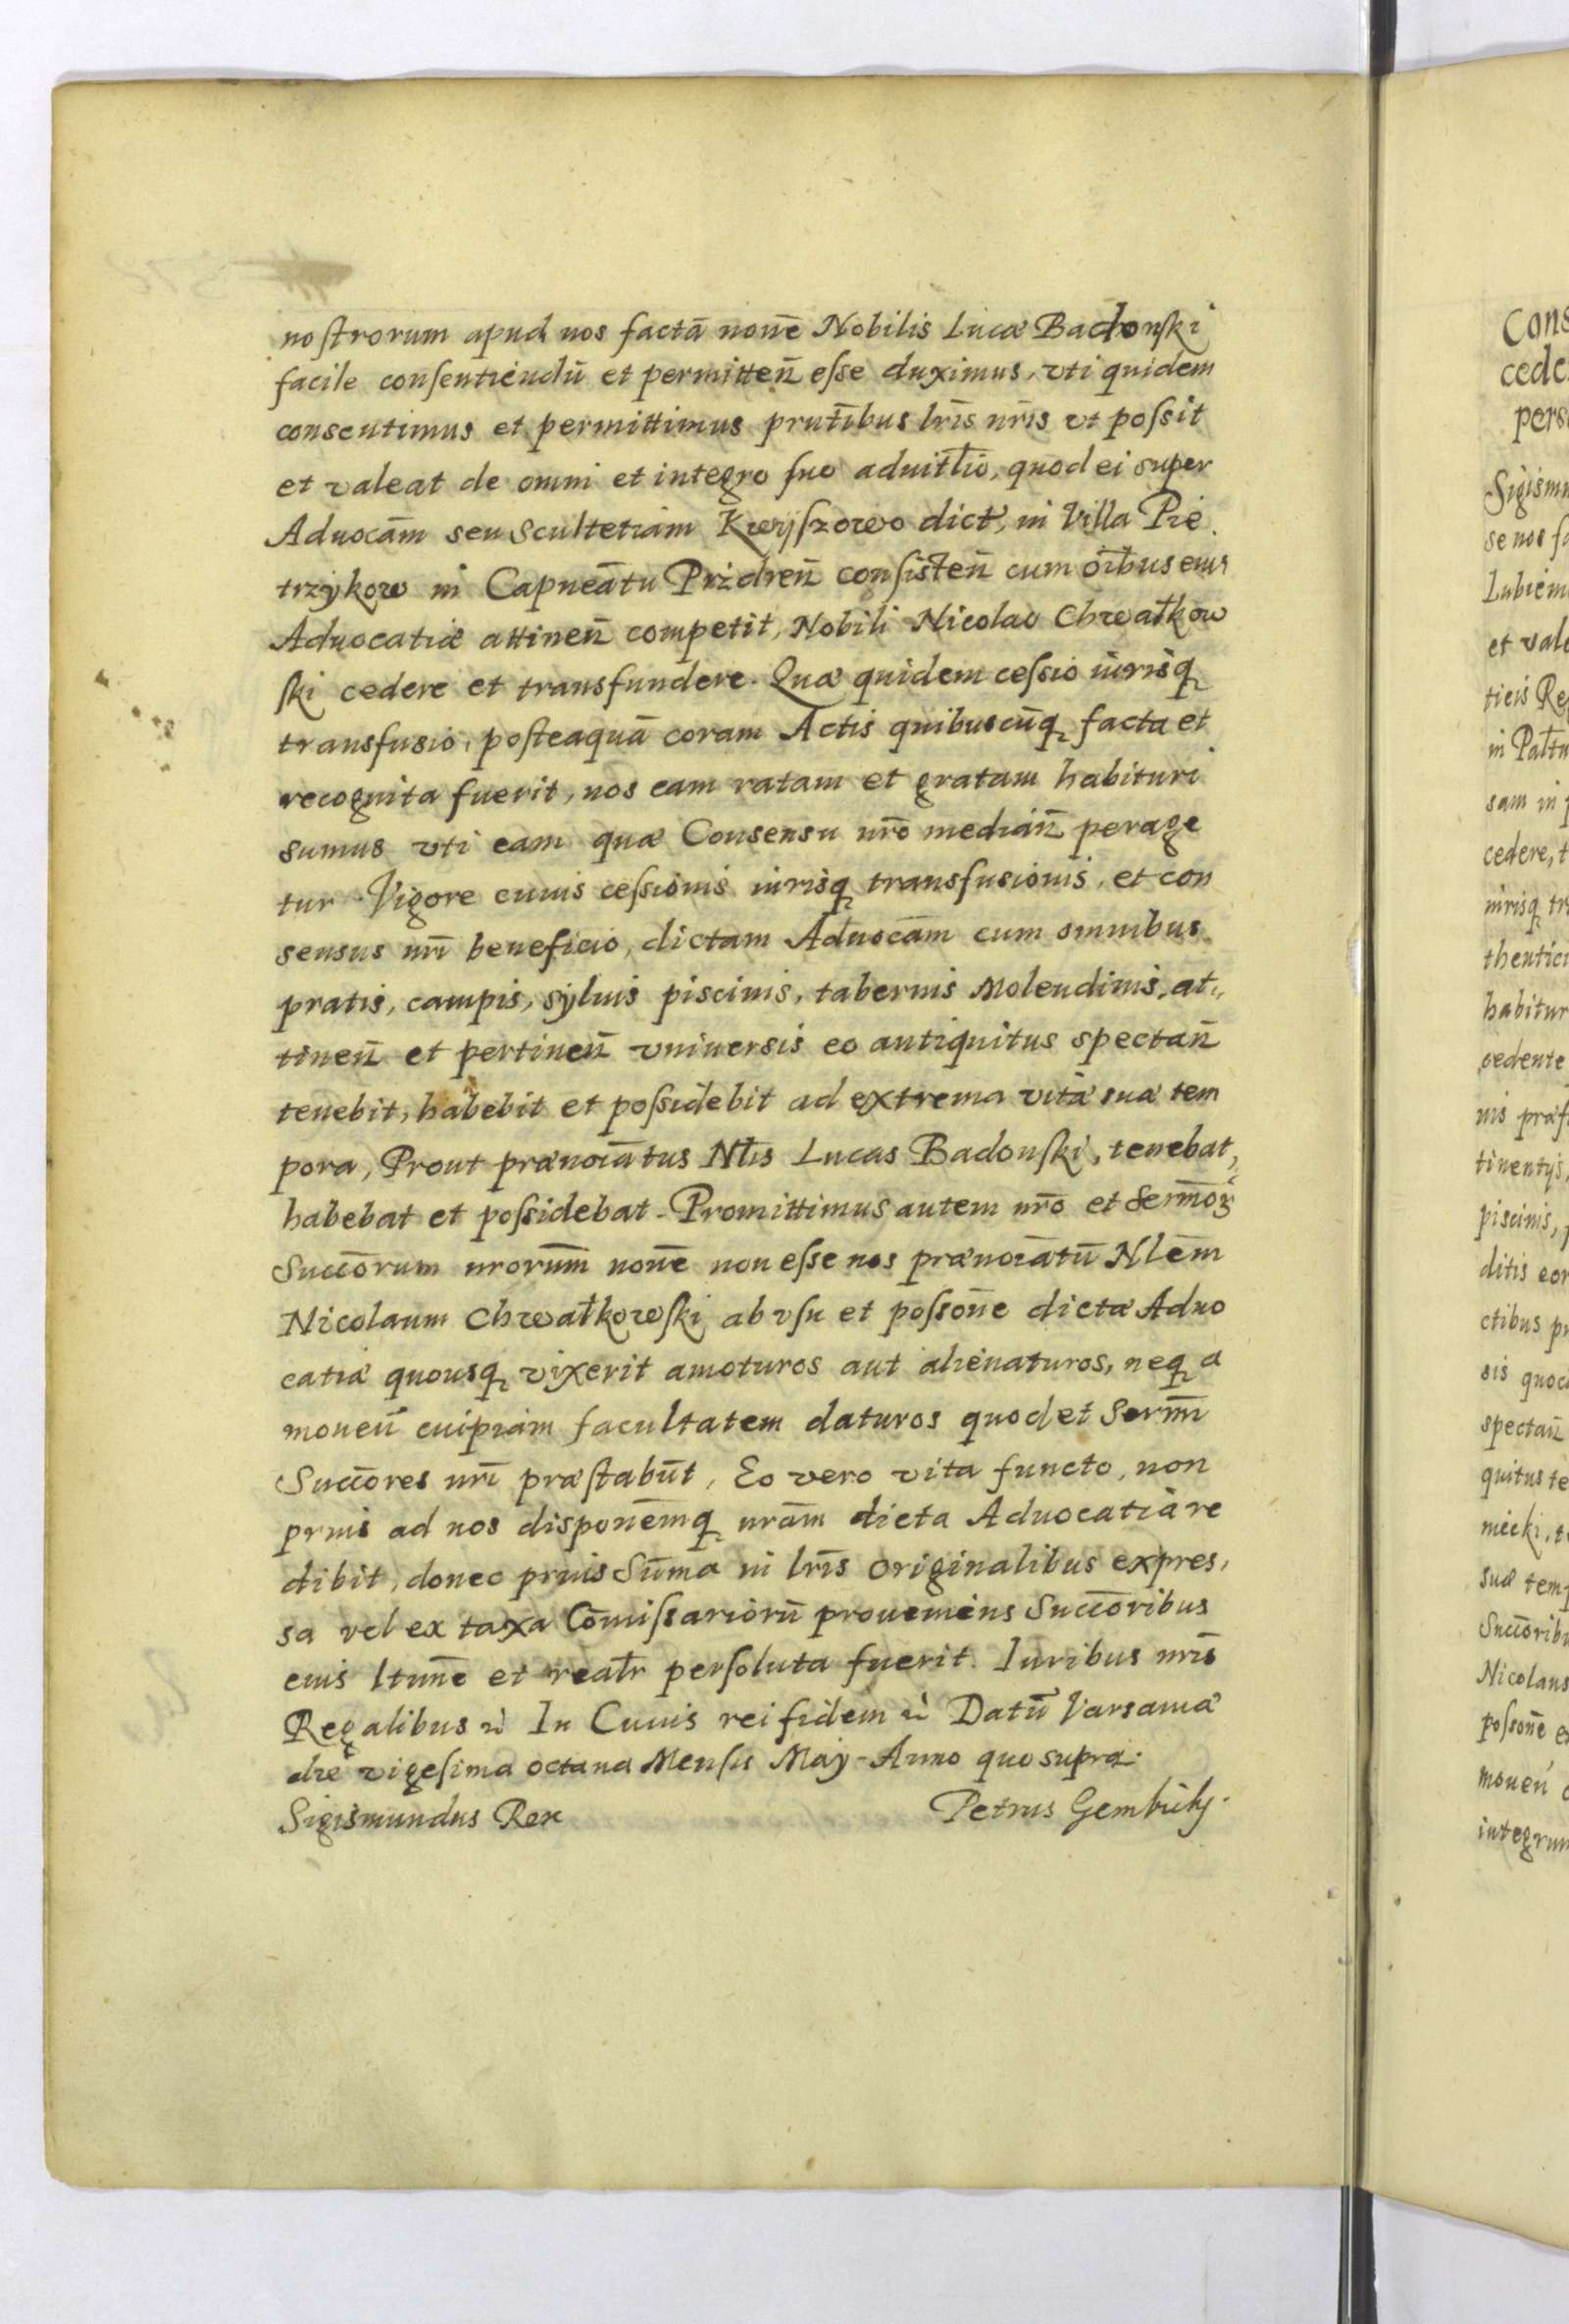 nostrorum apud nos factā noīe Nobilis Lucæ Badonski
facile consentiendū et permitteñ esse duximus, vti quidem
consentimus et permittimus pŕntibus lris nris vt possit
et valeat de omni et integro suo aduitlio, quod ei super
Aduocām seu Scultetiam Kwyszowo dict, in Villa Pie
trzykow in Capneātu Pizdreñ consisteñ cum oībus eius
Aduocatiæ attineñ competit, Nobili Nicolao Chwałkow
ski cedere et transfundere. Quæ quidem cessio iurisq
transfusio, posteaquā coram Actis quibuscūq facta et
recognita fuerit, nos eam ratam et gratam habituri
sumus vti eam quæ Consensu nro mediañ perage
tur. Vigore cuius cessionis iurisq transfusionis, et con
sensus nri beneficio, dictam Aduocām cum omnibus
pratis, campis, syluis piscinis, tabernis Molendinis, at„
tineñ et pertineñ vniuersis eo antiquitus spectañ
tenebit, habebit et possidebit ad extrema vitæ suæ tem
pora, Prout prænoīatus Nlis Lucas Badonski, tenebat,
habebat et possidebat. Promittimus autem nro et Sermor
Succōrum nrorum noīe non esse nos prænoīatū Nlēm
Nicolaum Chwałkowski ab vsu et possoñe dictæ Aduo
catiæ quousq vixerit amoturos aut alienaturos, neq a
moueñ cuipiam facultatem daturos quod et Sermi
Succōres nri præstabūt, Eo vero vita functo, non
prius ad nos disponēmq nrām dicta Aduocatia re
dibit, donec prius Sūma in lris originalibus expres,
sa vel ex taxa Cōmissariorū proueniens Succōribus
eius ltime et realr persoluta fuerit. Iuribus nris
Regalibus etc̀ In Cuius rei fidem etc̀ Datū Varsauiæ
die vigesima octaua Mensis Maÿ Anno quo supra.
Sigismundus Rex Petrus Gembicky.
Cons
cede
pers
Sigism
se nos fa
Lubiem
et vale
ticis Re
in Pałtu
sam in p
cedere, t
iurisq tr
thentici
habitur
cedente
nis præf
tinentÿs,
piscinis,
ditis eor
ctibus pr
sis quoc
spectañ
quitus te
niecki, t
suæ temp
Succōrib
Nicolaus
possoñe e
moueñ c
integrum